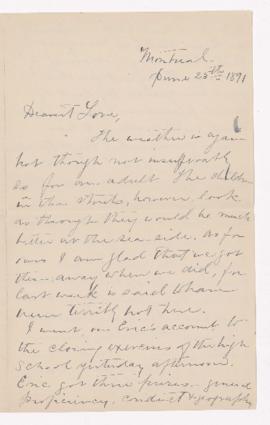 Montreal.
June 25th 1891
Dearest Love,
The weather is again
hot though not insufferably
so for an adult. The children
in the streets, however, look
as through they would be much
better at the sea-side. As for
ours I am glad that we got
them away when we did, for
last week is said to have
been terribly hot here.
I went on Eric's account to
the closing exercises of the high
School yesterday afternoon.
Eric got three prizes - general
proficiency, conduct & geography